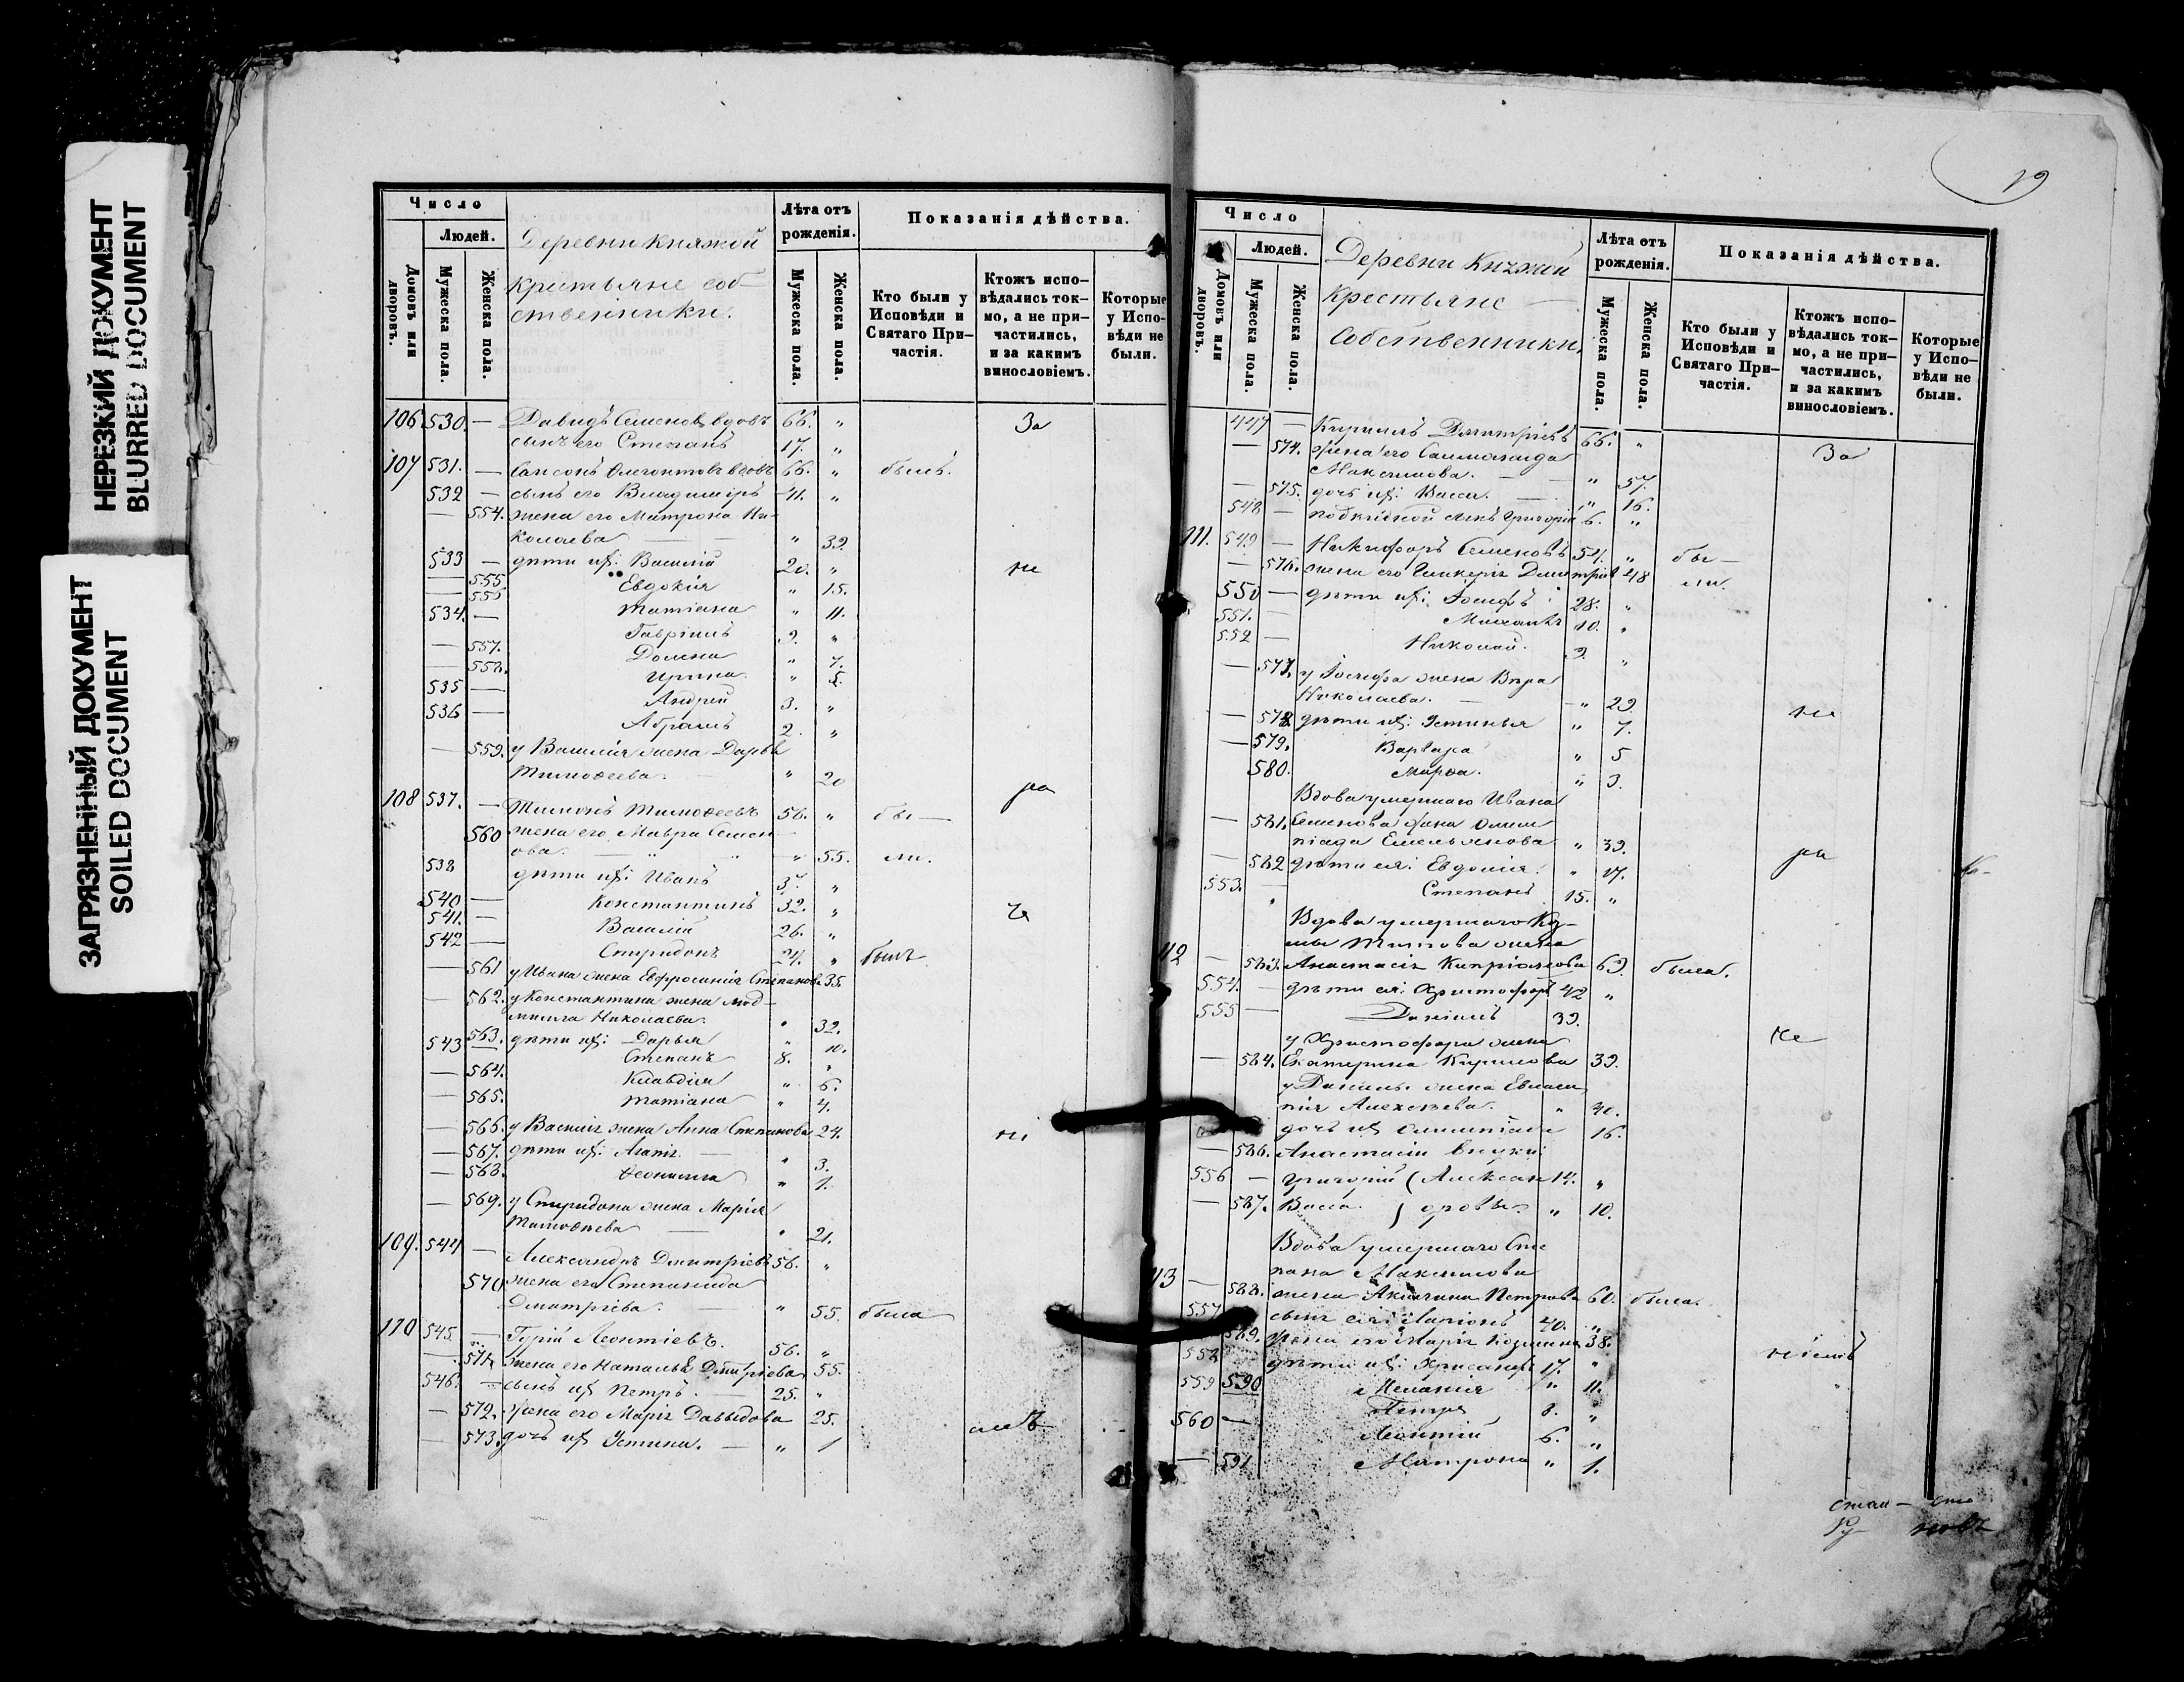 НЕРЕЗКИЙ ДОКУМЕНТ
BLURRED DOCUMENT
ЗАГРЯЗНЕННЫЙ ДОКУМЕНТ
SOILED DOCUMENT
Число
Людей.
Домовъ или дворовъ.
Мужеска пола.
Женска пола.
Деревни Княжой
Крестьяне соб-
ственники.
Лѣта отъ рожденія.
Мужеска пола.
Женска пола.
Показанія дѣйства.
Кто были у Исповѣди и Святаго При-частія.
Ктожъ испо-вѣдались ток-мо, а не при-частились, и за какимъ винословіемъ.
Которые у Испо-вѣди не были.
106 530. — Давидъ Семеновъ вдовъ 66. „ За
сынъ его Степанъ 17. „
107 531. — Самсонъ вдовъ 66. „ былъ.
532 — сынъ его Владимiръ 41. „
— 554. жена его Матрона Ни-
колаева „ 39.
533 — дѣти ихъ: Василій 20. „ не
— 555 Евдокія „ 15.
— 556 Татіана „ 11.
534. — Гавріилъ 9. „
— 557. Домна „ 7.
— 558. Ирина „ 5.
535 — Андрей 3. „
536 — Абрамъ 2. „
— 559. у Василія жена Дарья
Тимоѳеева. „ 20
108 537. — Тимоѳеевъ 56. „ бы— ра
560 жена его Мавра Семен-
ова. „ 55. ли.
538 дѣти ихъ: Иванъ 37. „
540 — Константинъ 32. „ че
541. — Василій 26. „
542 — Спиридонъ 24. „ былъ
— 561 у Ивана жена Евфросинія Степанова 35.
— 562. у Константина жена Люд-
мила Николаева. „ 32.
563. дѣти ихъ: Дарья „ 10.
543 Степанъ 8. „
— 564. Клавдія „ 6.
— 565. Татіана „ 4.
— 566. у Василія жена Анна Степанова 24. ні
— 567. дѣти ихъ: Агапія „ 3.
— 568. Ѳеонилла „ 1.
— 569. у Спиридона жена Марія
Тимоѳеева „ 21.
109. 544 — Александръ Дмитріевъ 56. „
570 жена его Степанида
Дмитріева. „ 55. была
110 545. — Гурій Леонтіевъ. 56. „
— 571. жена его Наталья Дмитріева 55.
546. — сынъ ихъ Петръ. 25. „
— 572. жена его Марія Давыдова 25. емъ
— 573. дочь ихъ Устина. — „ 1
19
Число
Людей.
Домовъ или дворовъ.
Мужеска пола.
Женска пола.
Деревни Княжой
Крестьяне —
Собственники.
Лѣта отъ рожденія.
Мужеска пола.
Женска пола.
Показанія дѣйства.
Кто были у Исповѣди и Святаго При-частія.
Ктожъ испо-вѣдались ток-мо, а не при-частились, и за какимъ винословіемъ.
Которые у Испо-вѣди не были.
447 — Кириллъ Дмитріевъ 66. „ За
— 574. жена его Саломанида
Максимова. „ 57.
— 575. дочь ихъ: Васса. „ 16.
548 — Григорій 6. „
111. 549 — Никифоръ Семеновъ 54. „ бы—
— 576. жена его Гликерія Дмитріев 48 ли.
550 — дѣти ихъ: Іосифъ 28. „
551. Михаилъ 10. „
552 — Николай. 9. „
— 577. у Іосифа жена Вѣра
Николаева. „ 29. не
— 578. дѣти ихъ: Устинья „ 7.
— 579. Варвара „ 5
580. Марѳа. „ 3.
Вдова умершаго Ивана
— 581. Семенова жена Олим-
піада Емельянова „ 39. ра
— 582 дѣти ея: Евдокія. „ 17.
553. — Степанъ 15. „
Вдова умершаго Коз-
мы жена
112 — 583. Анастасія Кипріанова 63. была.
554. — дѣти ея: Христофоръ 42 „
555 — Даніилъ 39.
у Христофора жена че
— 584. Екатерина Кирилова 39.
у Даніила жена Евлам-
пія Алексѣева. „ 40.
дочь ихъ Олимпіада 16.
— 586. Анастасіи внуки:
556 — Григорій (Алексан 14. „
— 587. Васса. ) дровы „ 10.
Вдова умершаго Сте
пана Максимова
113 — 588. жена Акилина Петрова 60. была.
557 сынъ ея: Ларіонъ 40. „
589. жена его Марія Козмина 38.
558 дѣти ихъ: Хрисанфъ 17. „ ніемъ
559 590 Меланія „ 11.
560 — Петръ 8. „
Леонтій 6. „
— 591 Матрона „ 1.